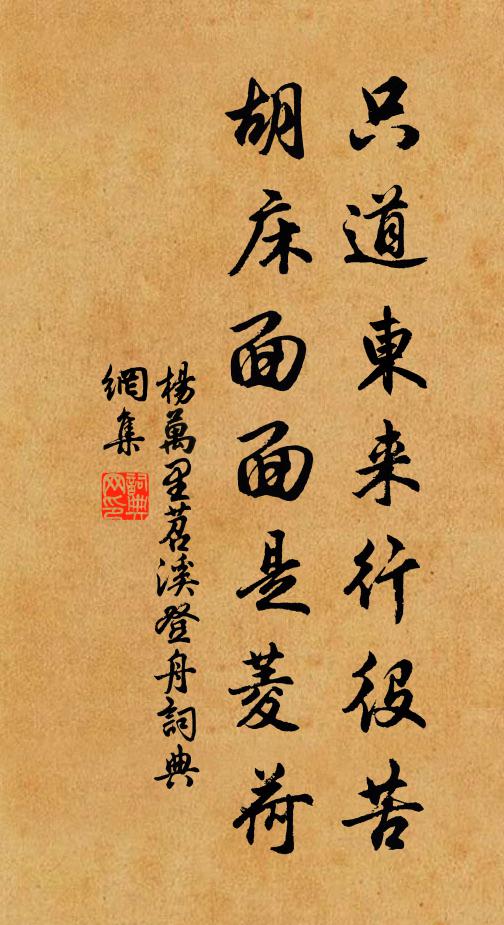 只道東来行役苦
胡床面面是菱荷
楊萬里苕溪登舟詞典
網集
詞典
网印